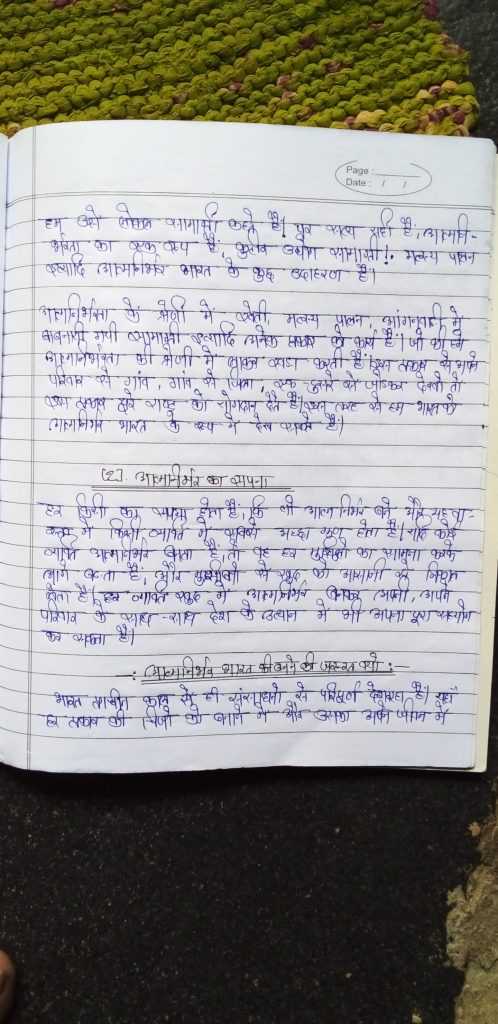 Page :
Date : / /
हम उसे लोकल सामग्री कहते है। पूर सत्य यही है, आत्मनि-
र्भरता का एक रूप है, कुटीर उद्योग सामाग्री! मत्स्य पालन
इत्यादि आत्मनिर्भर भारत के कुछ उदाहरण है।
आत्मनिर्भरता के श्रेणी में खेती, मत्स्य पालन, आंगनवाडी में
बनायी गयी सामाग्री इत्यादि अनेक प्रकार को कार्य है। जो की हमें
आत्मनिर्भरता की श्रेणी में लाकर खडा करती है। इस प्रकार से अपने
परिवार से गांव, गांव से जिला, एक-दुसरे से जोडकर देखो तो
इस प्रकार पूरे राष्ट्र को योगदान देते है। इस तरह से हम भारत को
आत्मनिर्भर भारत के रूप में देख सकते है।
[2]. आत्मनिर्भर का सपना
हर किसी का सपना होता है, कि वो आत्मनिर्भर बने और यह वा-
में किसी व्यक्ति में सबसे अच्छा गुण होता है। यदि कोई
व्यक्ति आत्मनिर्भर बनता है, तो वह हर मुश्किलो का सामना करके
आगे बढता है, और मुश्किलो से खुद को आसानी से निकाल
लेता है। हर व्यक्ति खुद में आत्मनिर्भर बनकर अपनी, अपने
परिवार के साथ-साथ देश के उत्थान में भी अपना पूरा सहयोग
कर सकता है।
—: आत्मनिर्भर भारत की बनने की जरूरत क्यो :—
भारत प्राचीन काल से ही संसाधनो से परिपूर्ण देश रहा है। यहाँ
हर प्रकार की चिजो को बनाने में और उसका अपने जीवन में